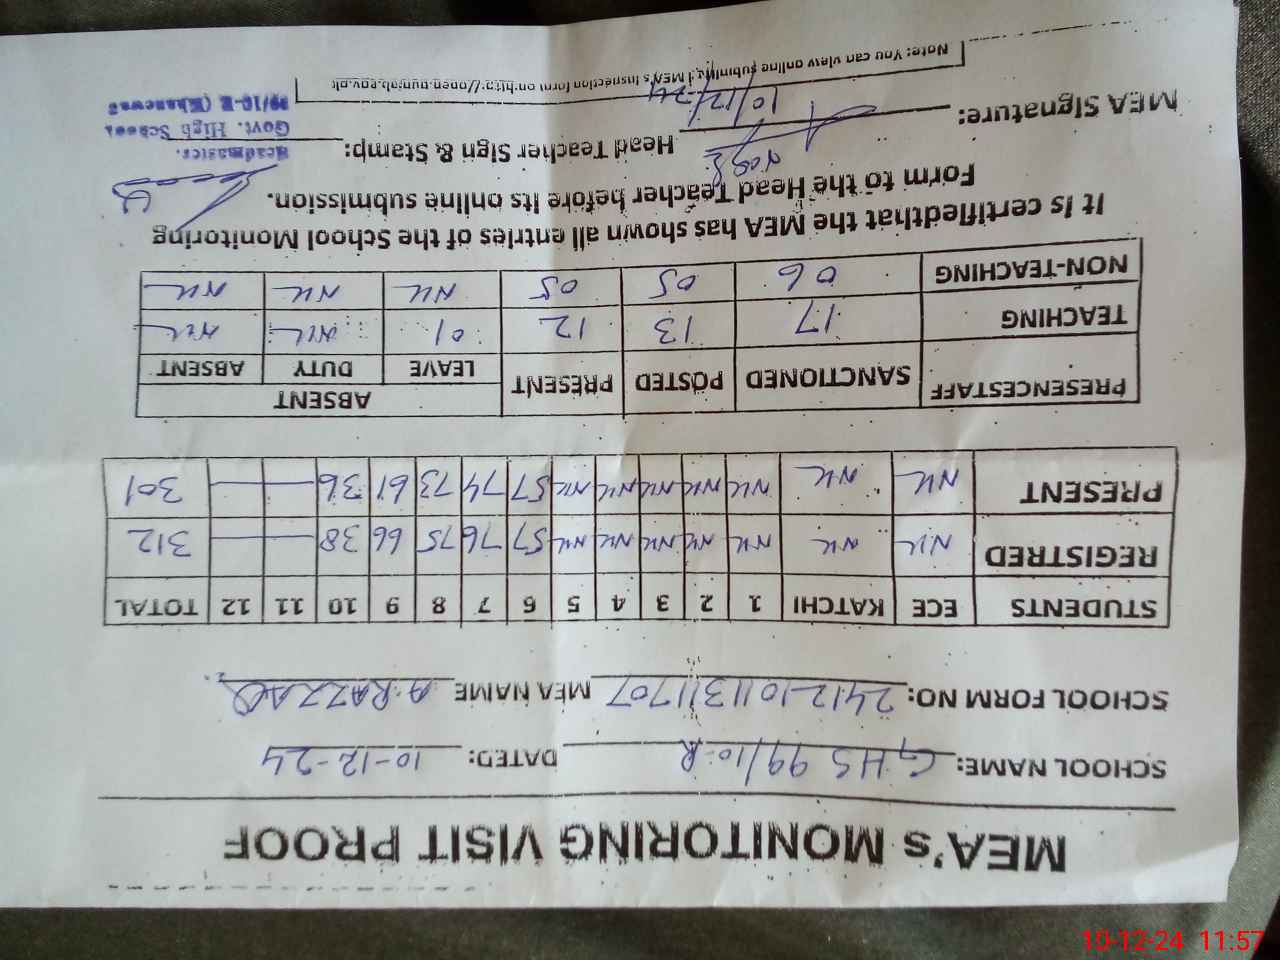 MEA's MONITORING VISIT PROOF
SCHOOL NAME: GHS 99/10-R DATED: 10-12-24
SCHOOL FORM NO: 24121011311707 MEA NAME A.RAZZAQ
STUDENTS ECE KATCHI 1 2 3 4 5 6 7 8 9 10 11 12 TOTAL
REGISTRED NIL NIL NIL NIL NIL NIL NIL 57 76 75 66 38 — — 312
PRESENT NIL NIL NIL NIL NIL NIL NIL 57 74 73 61 36 — — 301
PRESENCESTAFF SANCTIONED POSTED PRESENT ABSENT
LEAVE DUTY ABSENT
TEACHING 17 13 12 01 NIL NIL
NON-TEACHING 06 05 05 NIL NIL NIL
It is certifiedthat the MEA has shown all entries of the School Monitoring
Form to the Head Teacher before its online submission.
MEA Signature: 10/12/24 Head Teacher Sign & Stamp:
Headmaster.
Govt. High School
99/10-R (Khanewal)
Note: You can view online submitted MEA's inspection form on http://open.punjab.gov.pk
10-12-24 11:57